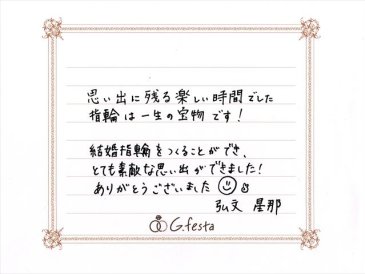 思い出に残る楽しい時間でした
指輪は一生の宝物です！
結婚指輪をつくることができ、
とても素敵な思い出ができました！
ありがとうございました
弘文 星那
G.festa